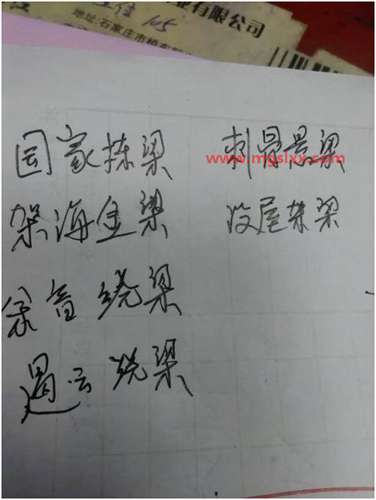 业有限公司
地址:石家庄市桥东
国家栋梁 刺骨悬梁
www.mgslxx.com
架海金梁 屋架梁
余音绕梁
遏云绕梁